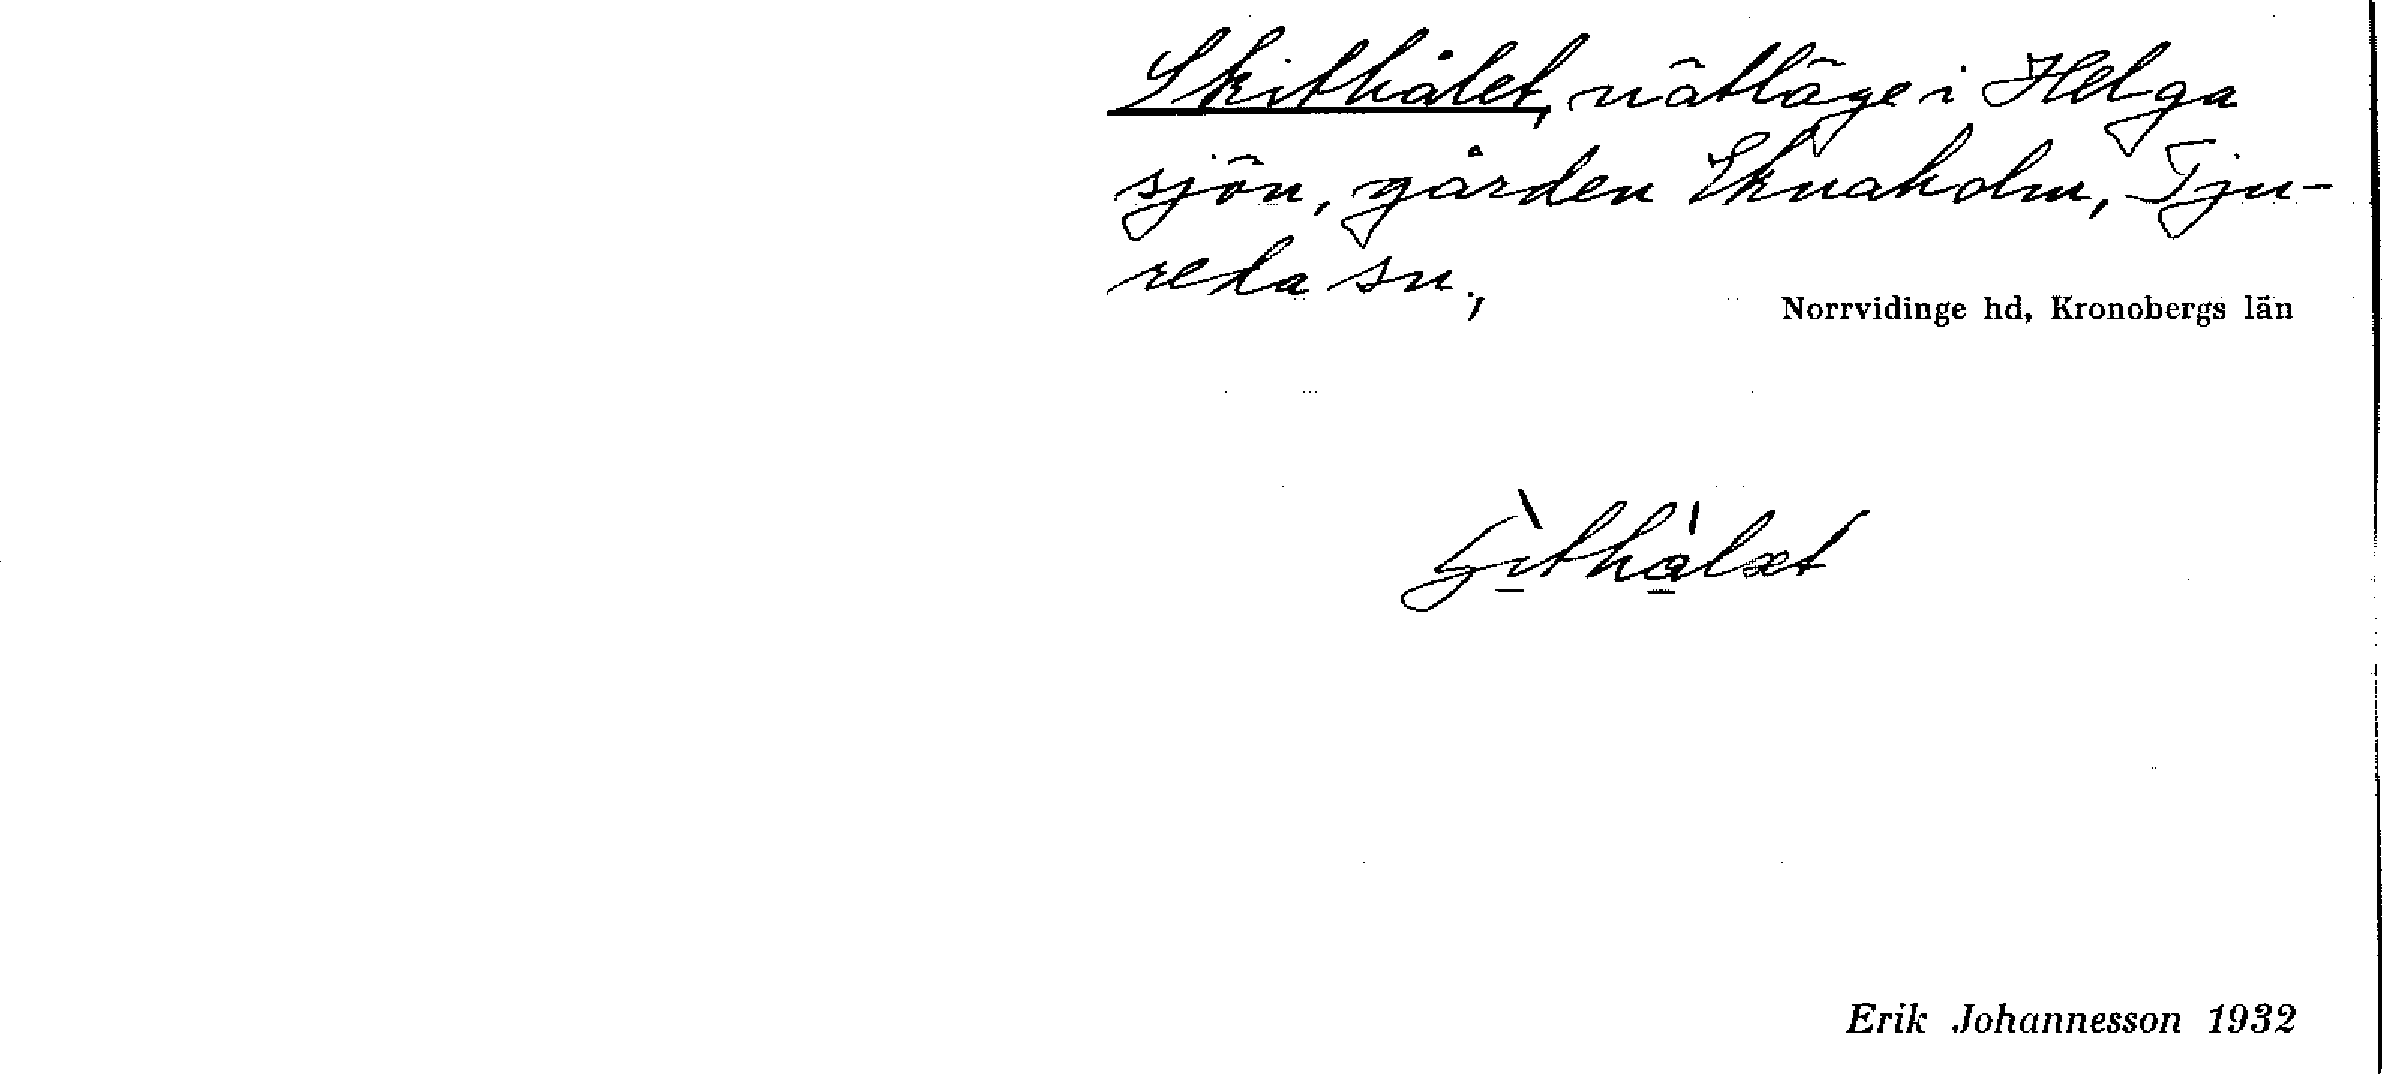 Skithålet, nätläge i Helga
sjön, gården Eknaholm, Tju-
reda sn,
Norrvidinge hd, Kronobergs län
Erik Johannesson 1932